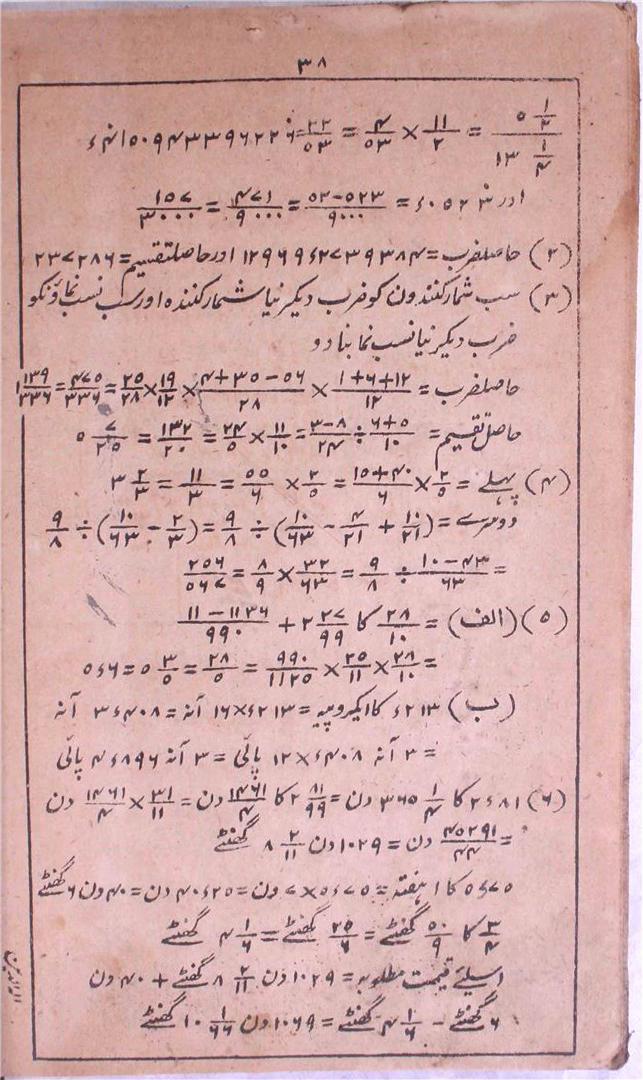 ۳۸
(۵ ۱/۲)/(۱۳ ۱/۴) = ۱۱/۲ × ۴/۵۳ = ۲۲/۵۳
اور
= (۵۲۳-۵۲)/۹۰۰۰ = ۴۷۱/۹۰۰۰ = ۱۵۷/۳۰۰۰
(۲) حاصلضرب = ۱۲۹۶۹۶۲۷۳۹۳۸۴ اور حاصلتقسیم = ۲۳۷۲۸۶
(۳) سب شمارکنندون کو ضرب دیکر نیا شمارکننده اور سب نسب نماؤنکو
ضرب دیکر نیا نسب نما بنا دو
حاصلضرب = (۱+۶+۱۲)/۱۲ × (۴+۳۵-۵۶)/۲۸ × ۱۹/۱۲ × ۲۵/۲۸ = ۴۷۵/۳۳۶ = ۱ ۱۳۹/۳۳۶
حاصل تقسیم = (۶+۵)/۱۰ ÷ (۳-۸)/۲۴ = ۱۱/۱۰ × ۲۴/۵ = ۱۳۲/۲۵ = ۵ ۷/۲۵
(۴) پہلے = ۲/۵ × (۱۵+۴۰)/۶ = ۲/۵ × ۵۵/۶ = ۱۱/۳ = ۳ ۲/۳
دوسرے = (۱۰/۲۱ + ۴/۲۱ - ۱۰/۶۳) ÷ ۹/۸ = (۲/۳ - ۱۰/۶۳) ÷ ۹/۸
= (۱۰-۴۲)/۶۳ ÷ ۹/۸ = ۳۲/۶۳ × ۸/۹ = ۲۵۶/۵۶۷
(۵) (الف) = ۲۸/۱۰ کا ۲ ۲۷/۹۹ + (۱۱-۱۱۳۶)/۹۹۰
= ۲۸/۱۰ × ۲۵/۱۱ × ۹۹۰/۱۱۲۵ = ۲۸/۵ = ۵ ۳/۵ = ۵ء۶
(ب) ۲۱۳ء کا ایکروپیہ = ۲۱۳ء × ۱۶ آنہ = ۳ء۴۰۸ آنہ
= ۳ آنہ ۴۰۸ء × ۱۲ پائی = ۳ آنہ ۴ء۸۹۶ پائی
(۶) ۲ء۸۱ کا ۳۶۵ ۱/۴ دن = ۲ ۸۱/۹۹ کا ۱۴۶۱/۴ دن = ۳۱/۱۱ × ۱۴۶۱/۴ دن
= ۴۵۲۹۱/۴۴ دن = ۱۰۲۹ دن ۸ ۲/۱۱ گھنٹے
۵ء۷۵ کا ۱ ہفتہ = ۵ء۷۵ × ۷ دن = ۴۰ء۲۵ دن = ۴۰ دن ۶ گھنٹے
۳/۴ کا ۵۰/۹ گھنٹے = ۲۵/۶ گھنٹے = ۴ ۱/۶ گھنٹے
اسلئے قیمت مطلوبہ = ۱۰۲۹ دن ۸ ۲/۱۱ گھنٹے + ۴۰ دن
۶ گھنٹے - ۴ ۱/۶ گھنٹے = ۱۰۶۹ دن ۱۰ ۱/۶۶ گھنٹے